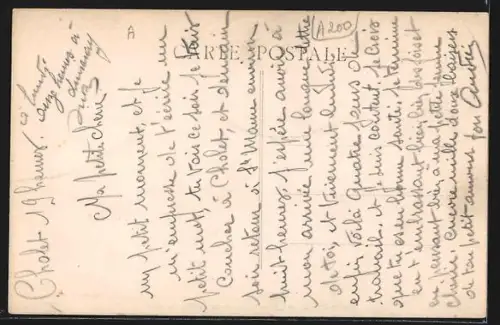 A
A200
CARTE POSTALE
Cholet 19 heures.
à
onze heures à
Ma petite chérie
un petit moment, et je
m'empresse de t'écrire un
petit mot, tu vois ce soir je vais
coucher à Cholet, et demain
soir retour à St
huit heures. J'espère avoir à
mon arrivée une longue lettre
de toi, et vivement
enfin voilà quatre jours de
travail et je suis content, je crois
que tu es en bonne santé, je termine
en t'embrassant bien bien fort et
en pensant bien à ma petite
chérie. encore mille doux baisers
de ton petit amour ton André